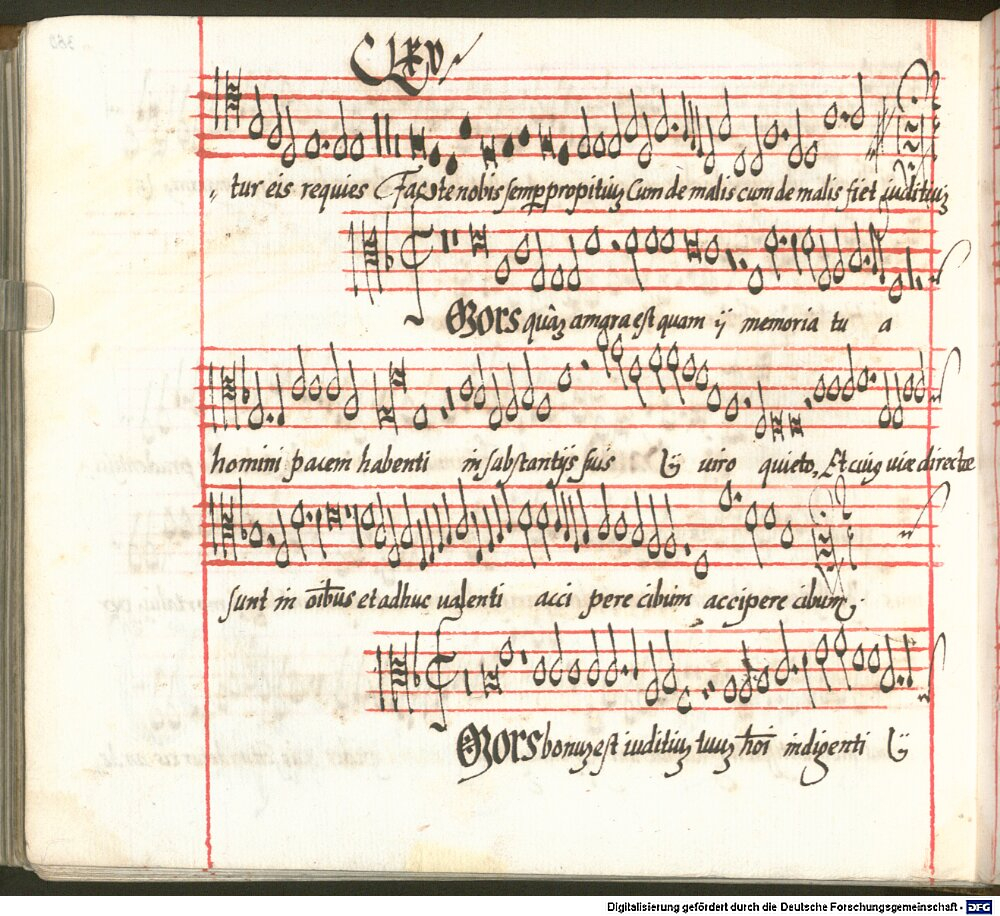 CLXV
tur eis requies Esto te nobis semp propitiuz Cum de malis cum de malis fiet iuditiuz
Mors quàz amara est quam ij memoria tu a
homini pacem habenti in substantijs suis ij uiro quieto, Et cuiq uiæ directæ
sunt in oibus et adhuc ualenti acci pere cibum accipere cibum,
Mors bonuz est iuditiuz tuuz hoi indigenti ij
Digitalisierung gefördert durch die Deutsche Forschungsgemeinschaft - DFG